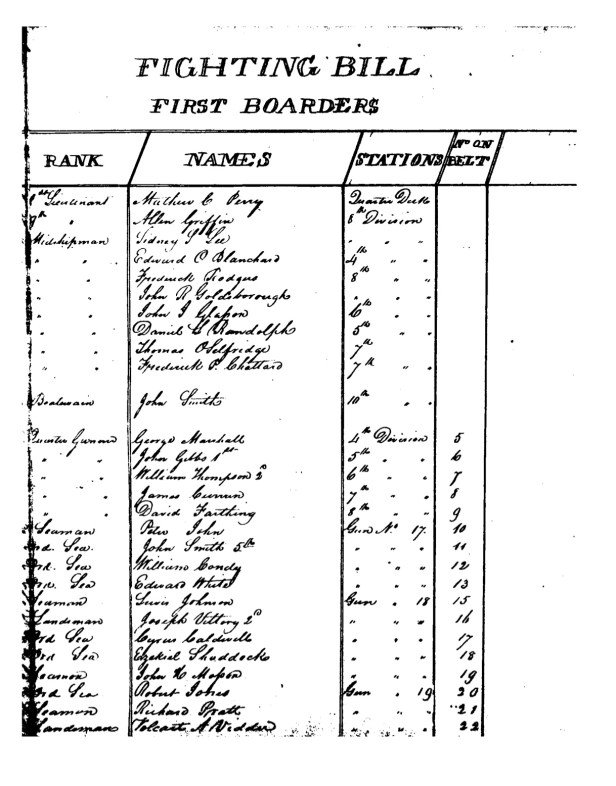 FIGHTING BILL
FIRST BOARDERS
RANK NAMES STATIONS No ON BELT
1st Lieutenant Mathew C Perry Quarter Deck
8th " Allen Griffin 8th Division
Midshipman Sidney S Lee " " "
" " Edward O Blanchard 4th " "
" " Frederick Rodgers 8th " "
" " John R Goldsborough " " "
" " John J Glasson 6th " "
" " Daniel Randolph 5th " "
" " Thomas O Selfridge 7th
" " Frederick P. Chattard 7th " "
Boatswain John Smith 10th " "
Quarter Gunner George Marshall 4th Division 5
" " John Gibbs 1st 5th " " 6
" " William Thompson 2d 6th " " 7
" " James Currun 7th " " 8
" " David Farthing 8th " " 9
Seaman Peter John Gun No 17. 10
Ord. Sea. John Smith 5th " " " 11
Ord. Sea William Condy " " " 12
Ord. Sea Edward White " " " 13
Seaman Lewis Johnson Gun " 18 15
Landsman Joseph Vittory 2d " " " 16
Ord Sea Cyrus Caldwell " " " 17
Ord Sea Ezekiel Shaddock " " " 18
Seaman John H Mason " " " 19
Ord Sea Robert Jones Gun " 19 20
Seaman Richard Pratt " " " 21
Landsman A Vedder " " " 22